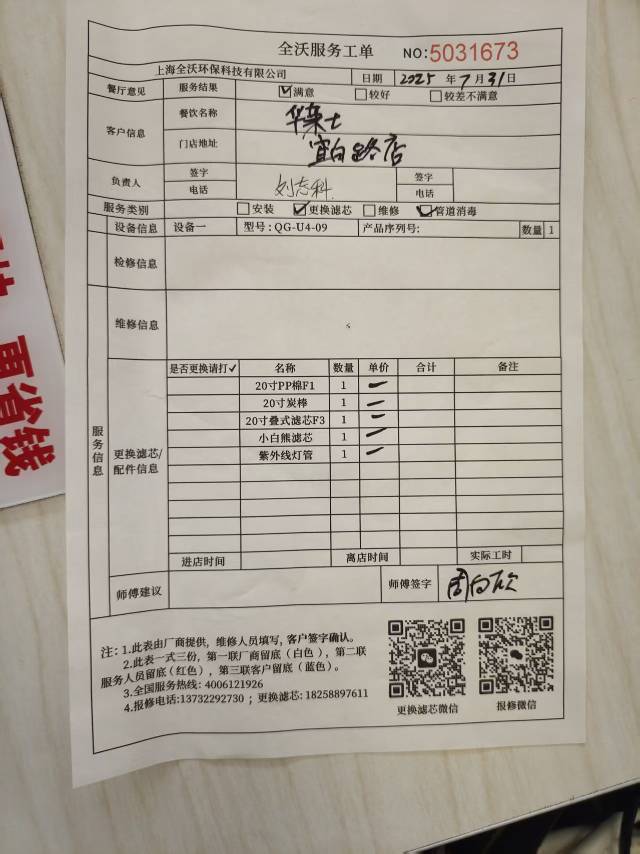 全沃服务工单 NO:5031673
上海全沃环保科技有限公司 日期 2025年7月31日
餐厅意见 服务结果 ☑满意 □较好 □较差不满意
客户信息 餐饮名称 华莱士
门店地址 宜白路店
负责人 签字 刘志科 签字
电话 电话
服务类别 □安装 ☑更换滤芯 □维修 ☑管道消毒
设备信息 设备一 型号:QG-U4-09 产品序列号: 数量 1
检修信息
服务信息
维修信息
更换滤芯/配件信息
是否更换请打✓ 名称 数量 单价 合计 备注
20寸PP棉F1 1 —
20寸炭棒 1 —
20寸叠式滤芯F3 1 —
小白熊滤芯 1 —
紫外线灯管 1 —
进店时间 离店时间 实际工时
师傅建议 师傅签字
注: 1.此表由厂商提供, 维修人员填写, 客户签字确认。
2.此表一式三份, 第一联厂商留底(白色), 第二联
服务人员留底(红色), 第三联客户留底(蓝色)。
3.全国服务热线: 4006121926
4.报修电话:13732292730 ; 更换滤芯: 18258897611
更换滤芯微信 报修微信
省钱